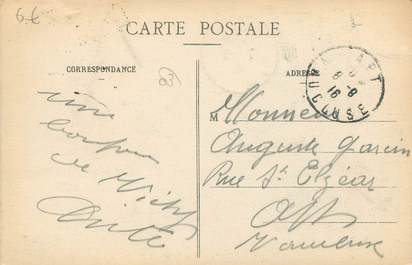 6€
CARTE POSTALE
CORRESPONDANCE
ADRESSE
83
APT
VAUCLUSE
8-8
16
M Monsieur
Auguste Garcin
Rue St Elzéar
Apt
Vaucluse
un
bonjour
de Vichy